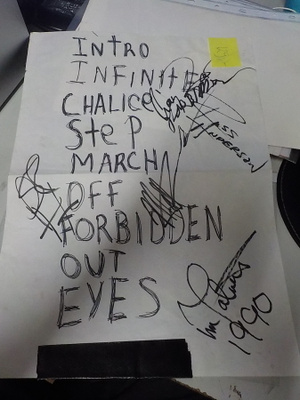 INTRO
INFINITE
CHALICE
STeP
MARCH
OFF
FORBIDDEN
OUT
EYES
ANDERSON
1990